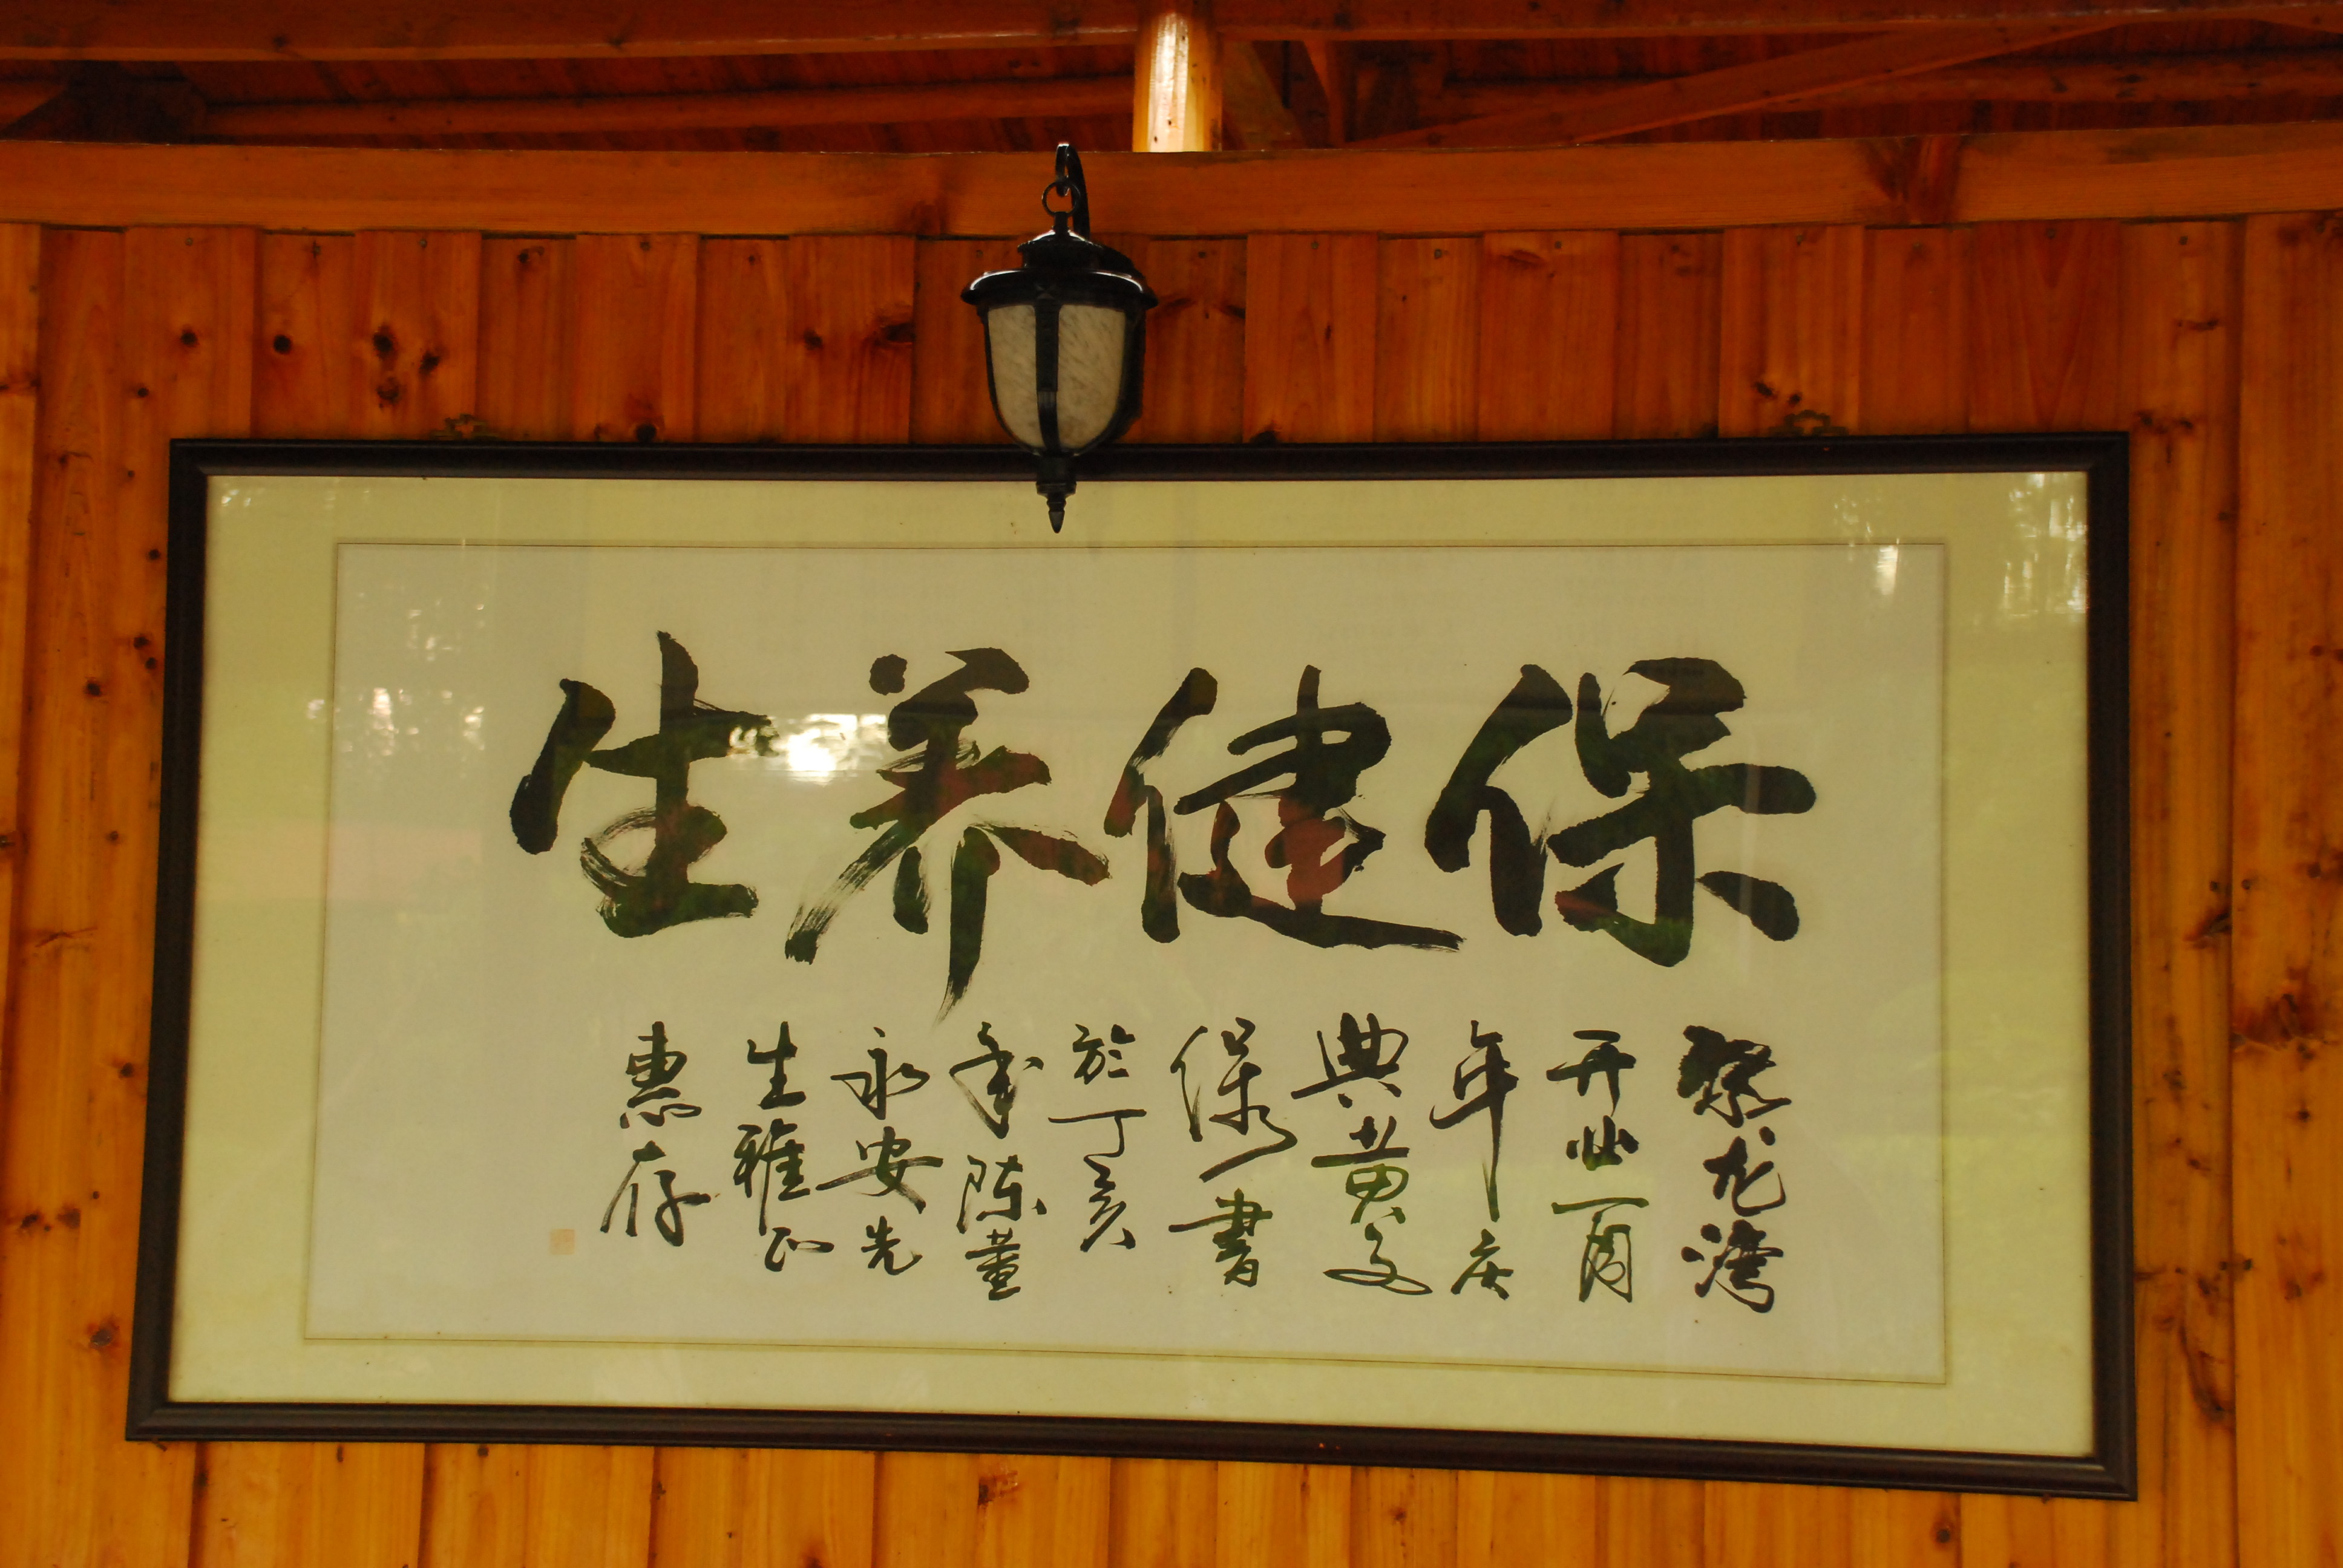 保健养生
聚龙湾
开业一周
年庆
典黄文
保书
於丁亥
年陈董
永安先
生雅正
惠存